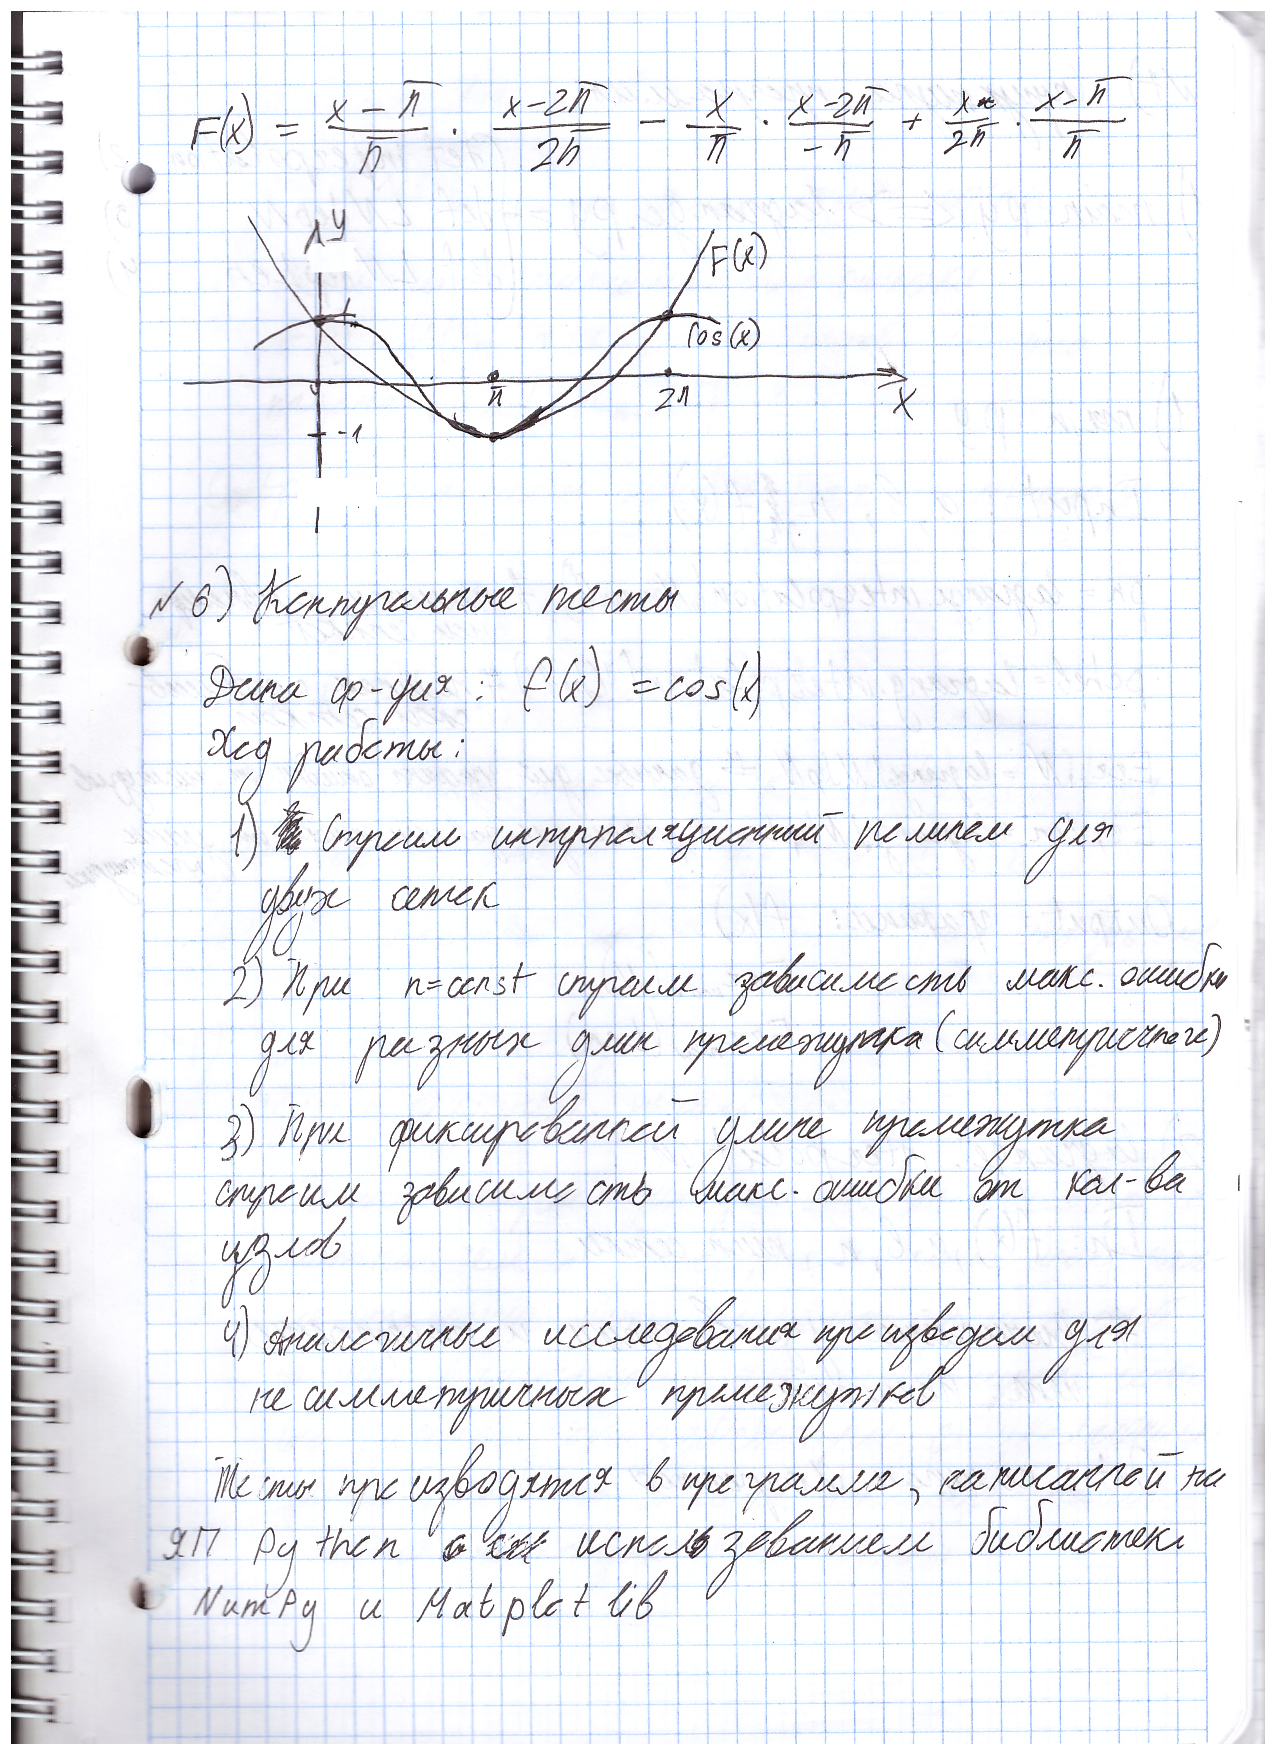 F(x) = (x - π)/π · (x - 2π)/2π - x/π · (x - 2π)/-π + x/2π · (x - π)/π
y
1
F(x)
cos(x)
π
2π
x
-1
№6) Контрольные тесты
Дана ф-ция: f(x) = cos(x)
Ход работы:
1) Строим интрполяционный полином для
двух сеток
2) При n=const строим зависимость макс. ошибки
для разных длин промежутка (симметричного)
3) При фиксированной длине промежутка
строим зависимость макс. ошибки от кол-ва
узлов
4) Аналогичные исследования производим для
не симметричных промежутков
Тесты производятся в программе, написанной на
ЯП Python с использованием библиотек
NumPy и Matplotlib